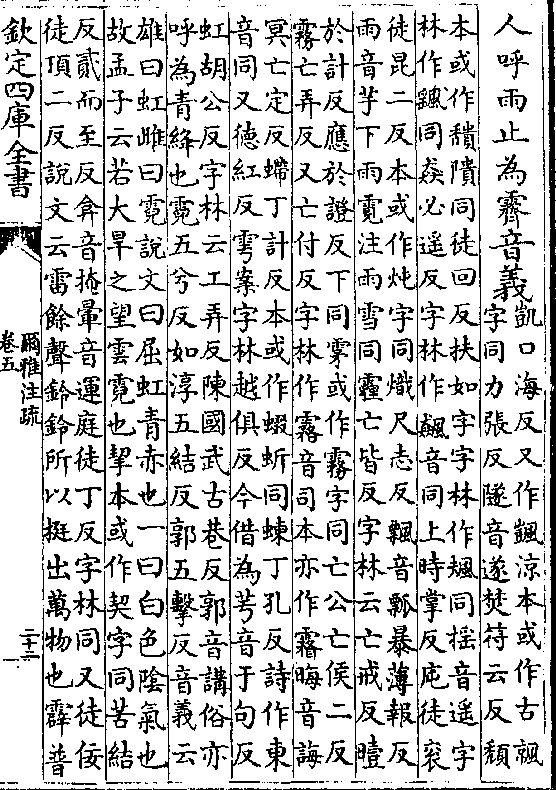 人呼雨止為霽音義凱口海反又作颽涼本或作古𩗬
字同力張反隧音遂焚符云反頽
本或作䅪隤同徒回反扶如字字林作颫同搖音遥字
林作飊同猋必遥反字林作飆音同上時掌反庉徒衮
徒昆二反本或作炖字同熾尺志反飄音瓢暴薄報反
雨音芋下雨霓注雨雪同霾亡皆反字林云亡戒反曀
於計反應於證反下同雺或作霧字同亡公亡侯二反
霧亡弄反又亡付反字林作霿音司本亦作霿晦音誨
冥亡定反螮丁計反本或作蝃蚚同蝀丁孔反詩作東
音同又德紅反雩案字林越俱反今借為芌音于句反
虹胡公反字林云工弄反陳國武古巷反郭音講俗亦
呼為青絳也霓五兮反如淳五結反郭五擊反音義云
雄曰虹雌曰霓說文曰屈虹青赤也一曰白色陰氣也
故孟子云若大旱之望雲霓也挈本或作契字同苦結
反貳而至反弇音掩暈音運庭徒丁反字林同又徒佞
徒頂二反說文云雷餘聲鈴鈴所以挺出萬物也霹普
欽定四庫全書
爾雅注疏
卷五
二十二